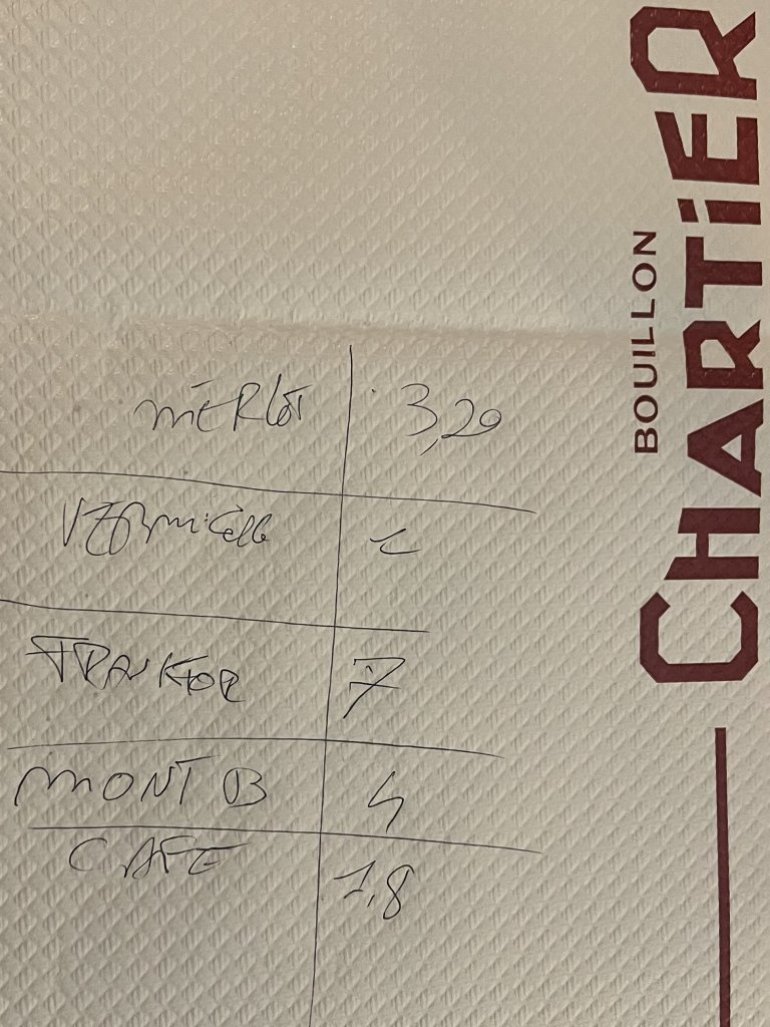 BOUILLON
CHARTiER
MERLOT 3,20
VERMiCELLE 1
FRANKFOR 7
MONT B 4
CAFE 1,8